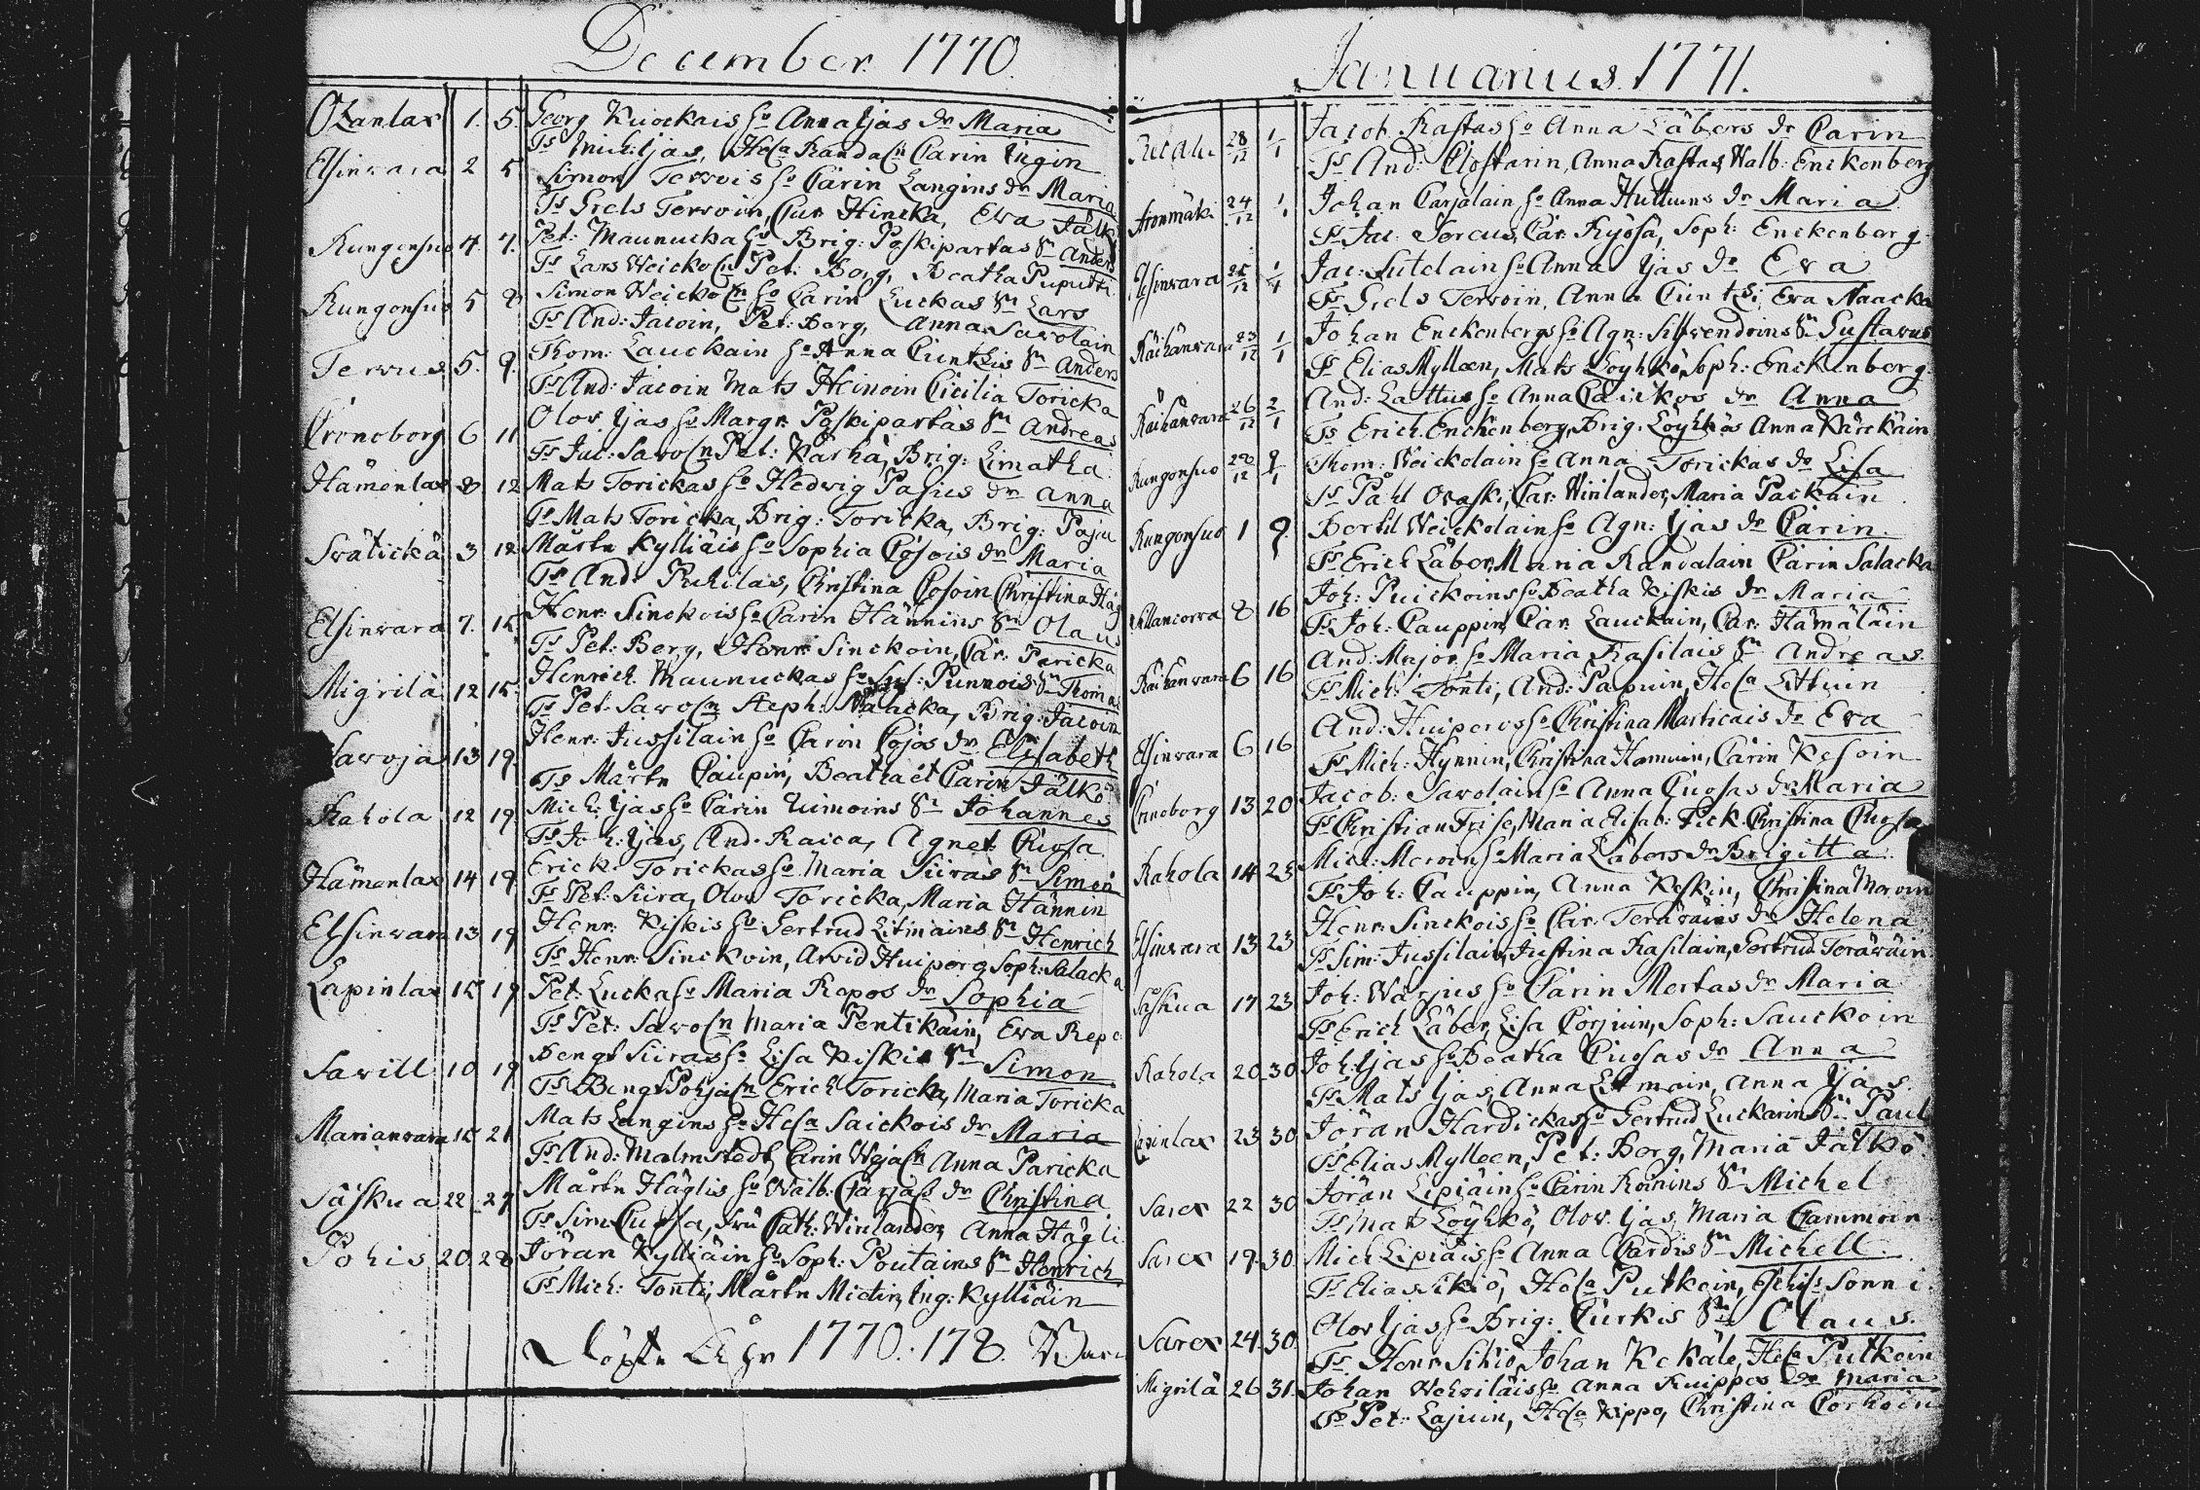 December 1770.
Otzanlax 1. 5. Georg Kuockais ho Anna Ijäs dr Maria
Ts Mich: Ijäs, Hela Randaln Carin Ingin
Elsinvara 2 5 Simon Tervois ho Carin Langins dr Maria
Ts Grels Tervoin, Car Hincka, Eva Jälkö
Kungonsuo 4. 7. Pet: Maunucka ho Brig: Paskipartas Sn Anders
Ts Lars Weickoln Pet: Borg, Beatha Puputti
Kungonsuo 5 8 Simon Weickoln ho Carin Luckas Sn Lars
Ts And: Jacoin, Pet: Borg, Anna Savolain
Tervus 5. 9. Thom: Lauckain ho Anna Cuntzis Sn Anders
Ts And: Jacoin Mats Heinoin Cicilia Toricka
Cronoborg 6 11 Olov Ijäs ho Margr: Paskipartas Sn Andreas
Ts Jac: Savoln Pet: Karha, Brig: Limatha
Hämenlax 8 12 Mats Torickas ho Hedvig Pajus dr Anna
Ts Mats Toricka, Brig: Toricka, Brig: Paju
Svätickä 3 12 Mårtn Kylliäis ho Sophia Cosois dr Maria
Ts And: Puhilas, Christina Cosoin Christina Häg
Elsinvara 7. 15. Henr: Sinckois ho Carin Hännins Sn Olaus
Ts Pet: Berg, Henr: Sinckoin, Car: Paricka
Migrilä 12 15. Henrich Maunuckas ho Sus: Punnois Sn Thomas
Ts Pet: Savoln Steph: Naucka, Brig: Jacoin
Savoja 13 19. Henr: Jussilain ho Carin Cojos dr Elisabeth
Ts Mårtn Caupin, Beatha et Carin Jälkö
Rahola 12 19. Mich: Ijäs ho Carin Uimoins Sn Johannes
Ts Joh: Ijäs, And. Raica, Agnet Cuosa.
Hämenlax 14 19 Erick Torickas ho Maria Siiras Sn Simon
Ts Pet: Siira, Olov Toricka, Maria Hännin
Elsinvara 13 19 Henr: Kiskis ho Gertrud Litmains Sn Henrich
Ts Henr: Sinckoin, Arvid Huiperg Soph: Salacka
Lapinlax 15 19 Pet: Lucka ho Maria Repos dr Sophia
Ts Pet: Savoln Maria Pentikäin, Eva Repo
Savill 10 19 Bengt Siiras ho Lisa Kiskis Sn Simon
Ts Bengt Pohjaln Erich Toricka, Maria Toricka
Marianvara 15 21 Mats Langins ho Hela Saickois dr Maria
Ts And: Malmstedt, Carin Wejaln Anna Paricka
Säskua 22. 27 Mårtn Häglis ho Walb: Carjals dr Christina
Ts Sim: Cuosa, fru Cath: Winlander, Anna Hägli
Pohis 20. 28 Jöran Kylliäin ho Soph: Poutains Sn Henrich
Ts Mich: Tonti, Mårtn Mietin, Ing: Kylliäin
1770. 178.
Januarius. 1771.
28/12 1/1 Jacob Rastas ho Anna Läbers dr Carin
Ts And: Clostarin, Anna Rastas, Walb: Enckenberg
24/12 1/1 Johan Carjalain ho Anna Huttuns dr Maria
Ts Jac: Torcus, Car: Ryösä, Soph: Enckenberg.
Elsinvara 25/12 1/1 Jac: Sutelain ho Anna Ijäs dr Eva
Ts Grels Tervoin, Anna Cuntzi, Eva Naacka
Räihänvara 23/12 1/1 Johan Enckenbergs ho Agn: Silvendoins Sn Gustavus
Ts Elias Mylleen, Mats Löyhkö, Soph: Enckenberg.
Räihänvara 26/12 2/1 And: Lattus ho Anna Caickos dr Anna
Ts Erich Enckenberg, Brig: Löyhkös Anna Kärckäin
Kungonsuo 28/12 9/1 Thom: Weickolain ho Anna Torickas dr Lisa
Ts Påhl Orask: Car: Winlander, Maria Packain
Kungonsuo 1 9. Bertil Weickolain ho Agn: Ijäs dr Carin
Ts Erich Läber, Maria Randalain Carin Salacka
8 16 Joh: Puickoins ho Beatha Kiskis dr Maria
Ts Joh: Cauppin, Car: Lauckain, Car: Hämäläin
Räihänvara 6 16 And: Major ho Maria Rasilais Sn Andreas.
Ts Mich: Tonti, And: Papuin, Hela Littuin
Elsinvara 6 16 And: Huipers ho Christina Marticais dr Eva
Ts Mich: Hynnin, Christina Homain, Carin Kesoin
Cronoborg 13 20 Jacob: Savolain ho Anna Cuosas dr Maria
Ts Christian Frise, Maria Elisab: Fick Christina Cuosa
Rahola 14 23 Mich: Mervin ho Maria Läbers dr Brigitta
Ts Joh: Cauppin, Anna Keskin, Christina Mervin
Elsinvara 13 23 Henr: Sinckois ho Car: Teräväins dr Helena
Ts Sim: Jussilain, Justina Rasilain, Gertrud Teräväin
Säskua 17 23 Joh: Warjus ho Carin Mertas dr Maria
Ts Erich Läber, Lisa Corjuin, Soph: Sauckoin
Rahola 20 30 Joh: Ijäs ho Beatha Cuosas dr Anna
Ts Mats Ijäs, Anna Litmain, Anna Ijäs.
Lapinlax 23 30 Jöran Hardickas ho Gertrud Luckarins Sn Paul
Ts Elias Mylleen, Pet: Borg, Maria Jälkö
Sarex 22 30 Jöran Lipiäin ho Carin Roinins Sn Michel
Ts Mat Löyhkö, Olov Ijäs Maria Cammoin
Sarex 19. 30. Mich Lipiäis ho Anna Cardis Sn Michell.
Ts Elias Sikiö, Hela Putkoin,
Sarex 24 30. Olov Ijäs ho Brig: Curkis Sn Olaus.
Ts Henr Sikiö, Johan Kekäle, Hela Putkoin
Migrilä 26 31. Johan Wehviläis ho Anna Kuippos dr Maria
Ts Pet: Lajuin, Hela Kippo, Christina Corhoin